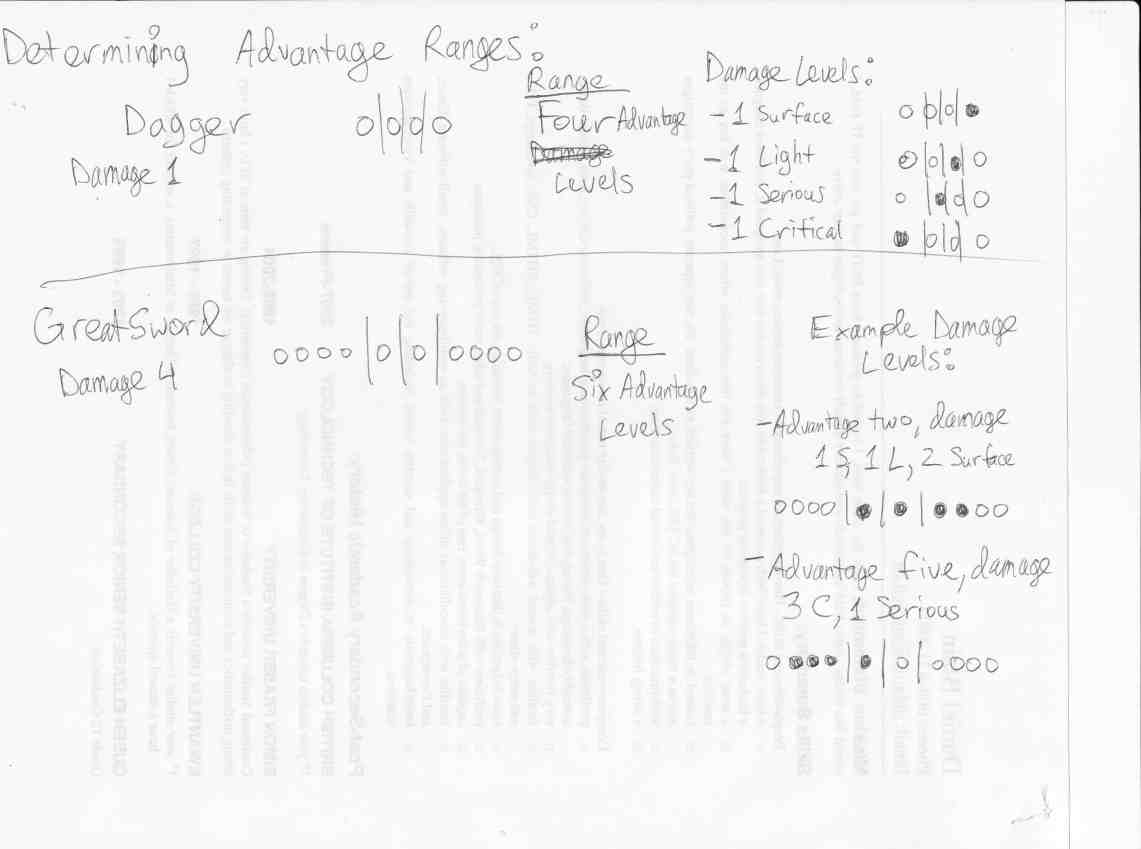 Determining Advantage Ranges:
Dagger
Damage 1
Range
Four Advantage
Damage
Levels
Damage Levels:
-1 Surface
-1 Light
-1 Serious
-1 Critical
GreatSword
Damage 4
Range
Six Advantage
Levels
Example Damage
Levels:
-Advantage two, damage
1 S, 1 L, 2 Surface
-Advantage five, damage
3 C, 1 Serious